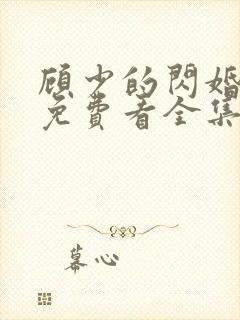 顾少的閃婚
免費看全集
幕心